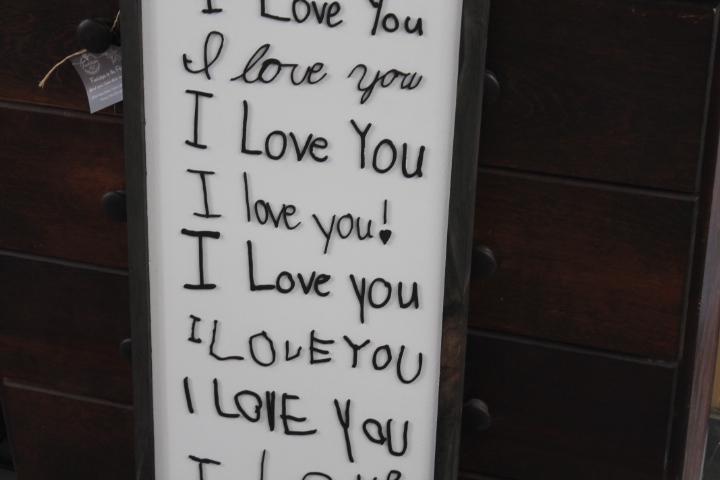 I Love You
I love you
I Love You
I love you!
I Love you
I LOVE YOU
I LOVE YOU
I